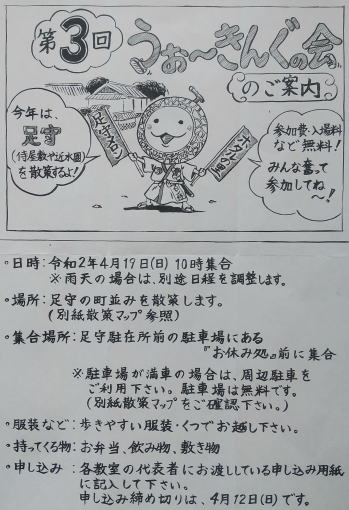 第3回 うぉ〜きんぐの会
のご案内
今年は、
足守
(侍屋敷や近水園)
を散策するよ!
足守メロン
ホタルの里
参加費・入場料
など無料!
みんな奮って
参加してね
〜!
・日時:令和2年4月19日(日) 10時集合
※雨天の場合は、別途日程を調整します。
・場所:足守の町並みを散策します。
(別紙散策マップ参照)
・集合場所:足守駐在所前の駐車場にある
『お休み処』前に集合
※駐車場が満車の場合は、周辺駐車を
ご利用下さい。駐車場は無料です。
(別紙散策マップをご確認下さい。)
・服装など:歩きやすい服装・くつでお越し下さい。
・持ってくる物:お弁当、飲み物、敷き物
・申し込み:各教室の代表者にお渡ししている申し込み用紙
に記入して下さい。
申し込み締め切りは、4月12日(日)です。